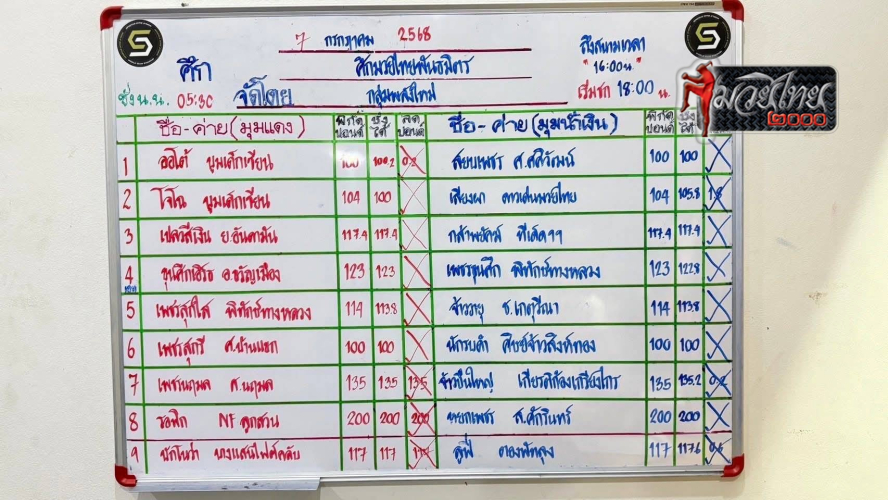 7 กรกฎาคม 2568
ศึกมวยไทยพันธมิตร
ถึงสนามเวลา
16:00 น.
ศึก
ชั่ง น.น. 05:30 จัดโดย กลุ่มพลังใหม่ เริ่มชก 18:00 น.
มวยไทย
๒๐๐๐
ชื่อ-ค่าย (มุมแดง) พิกัด ปอนด์ ชั่ง ได้ ลด ปอนด์ ชื่อ-ค่าย (มุมน้ำเงิน) พิกัด ปอนด์ ชั่ง ได้
1 ออโต้ บูมเด็กเซียน 100 100.2 0.2 สยบเพชร ศ.ศศิวัฒน์ 100 100
2 โจโฉ บูมเด็กเซียน 104 100 เสียงผา ดาวเด่นมวยไทย 104 105.8 1.8
3 เปลวสีเงิน ย.อันดามัน 117.4 117.4 กล้าพยัคฆ์ 117.4 117.4
4 ขุนศึกเฮิร์ธ อ.ขวัญเมือง 123 123 เพชรขุนศึก พิทักษ์ทางหลวง 123 122.8
5 เพชรสุกใส พิทักษ์ทางหลวง 114 113.8 จ้าววายุ ช.เกตุวีณา 114 113.8
6 เพชรสุกรี ศ.น่านแขก 100 100 นักรบดำ ศิษย์จ้าวสิงห์ทอง 100 100
7 เพชรนฤมล ส.นฤมล 135 135 135 จ้าวปืนใหญ่ เกียรติก้องเกรียงไกร 135 135.2 0.2
8 ซอฟิก NF ลูกสวน 200 200 200 หยกเพชร ส.ศักรินทร์ 200 200
9 นักโนว่า บางแสนไฟต์คลับ 117 117 ลูฟี่ ดองพัทลุง 117 117.6 0.6